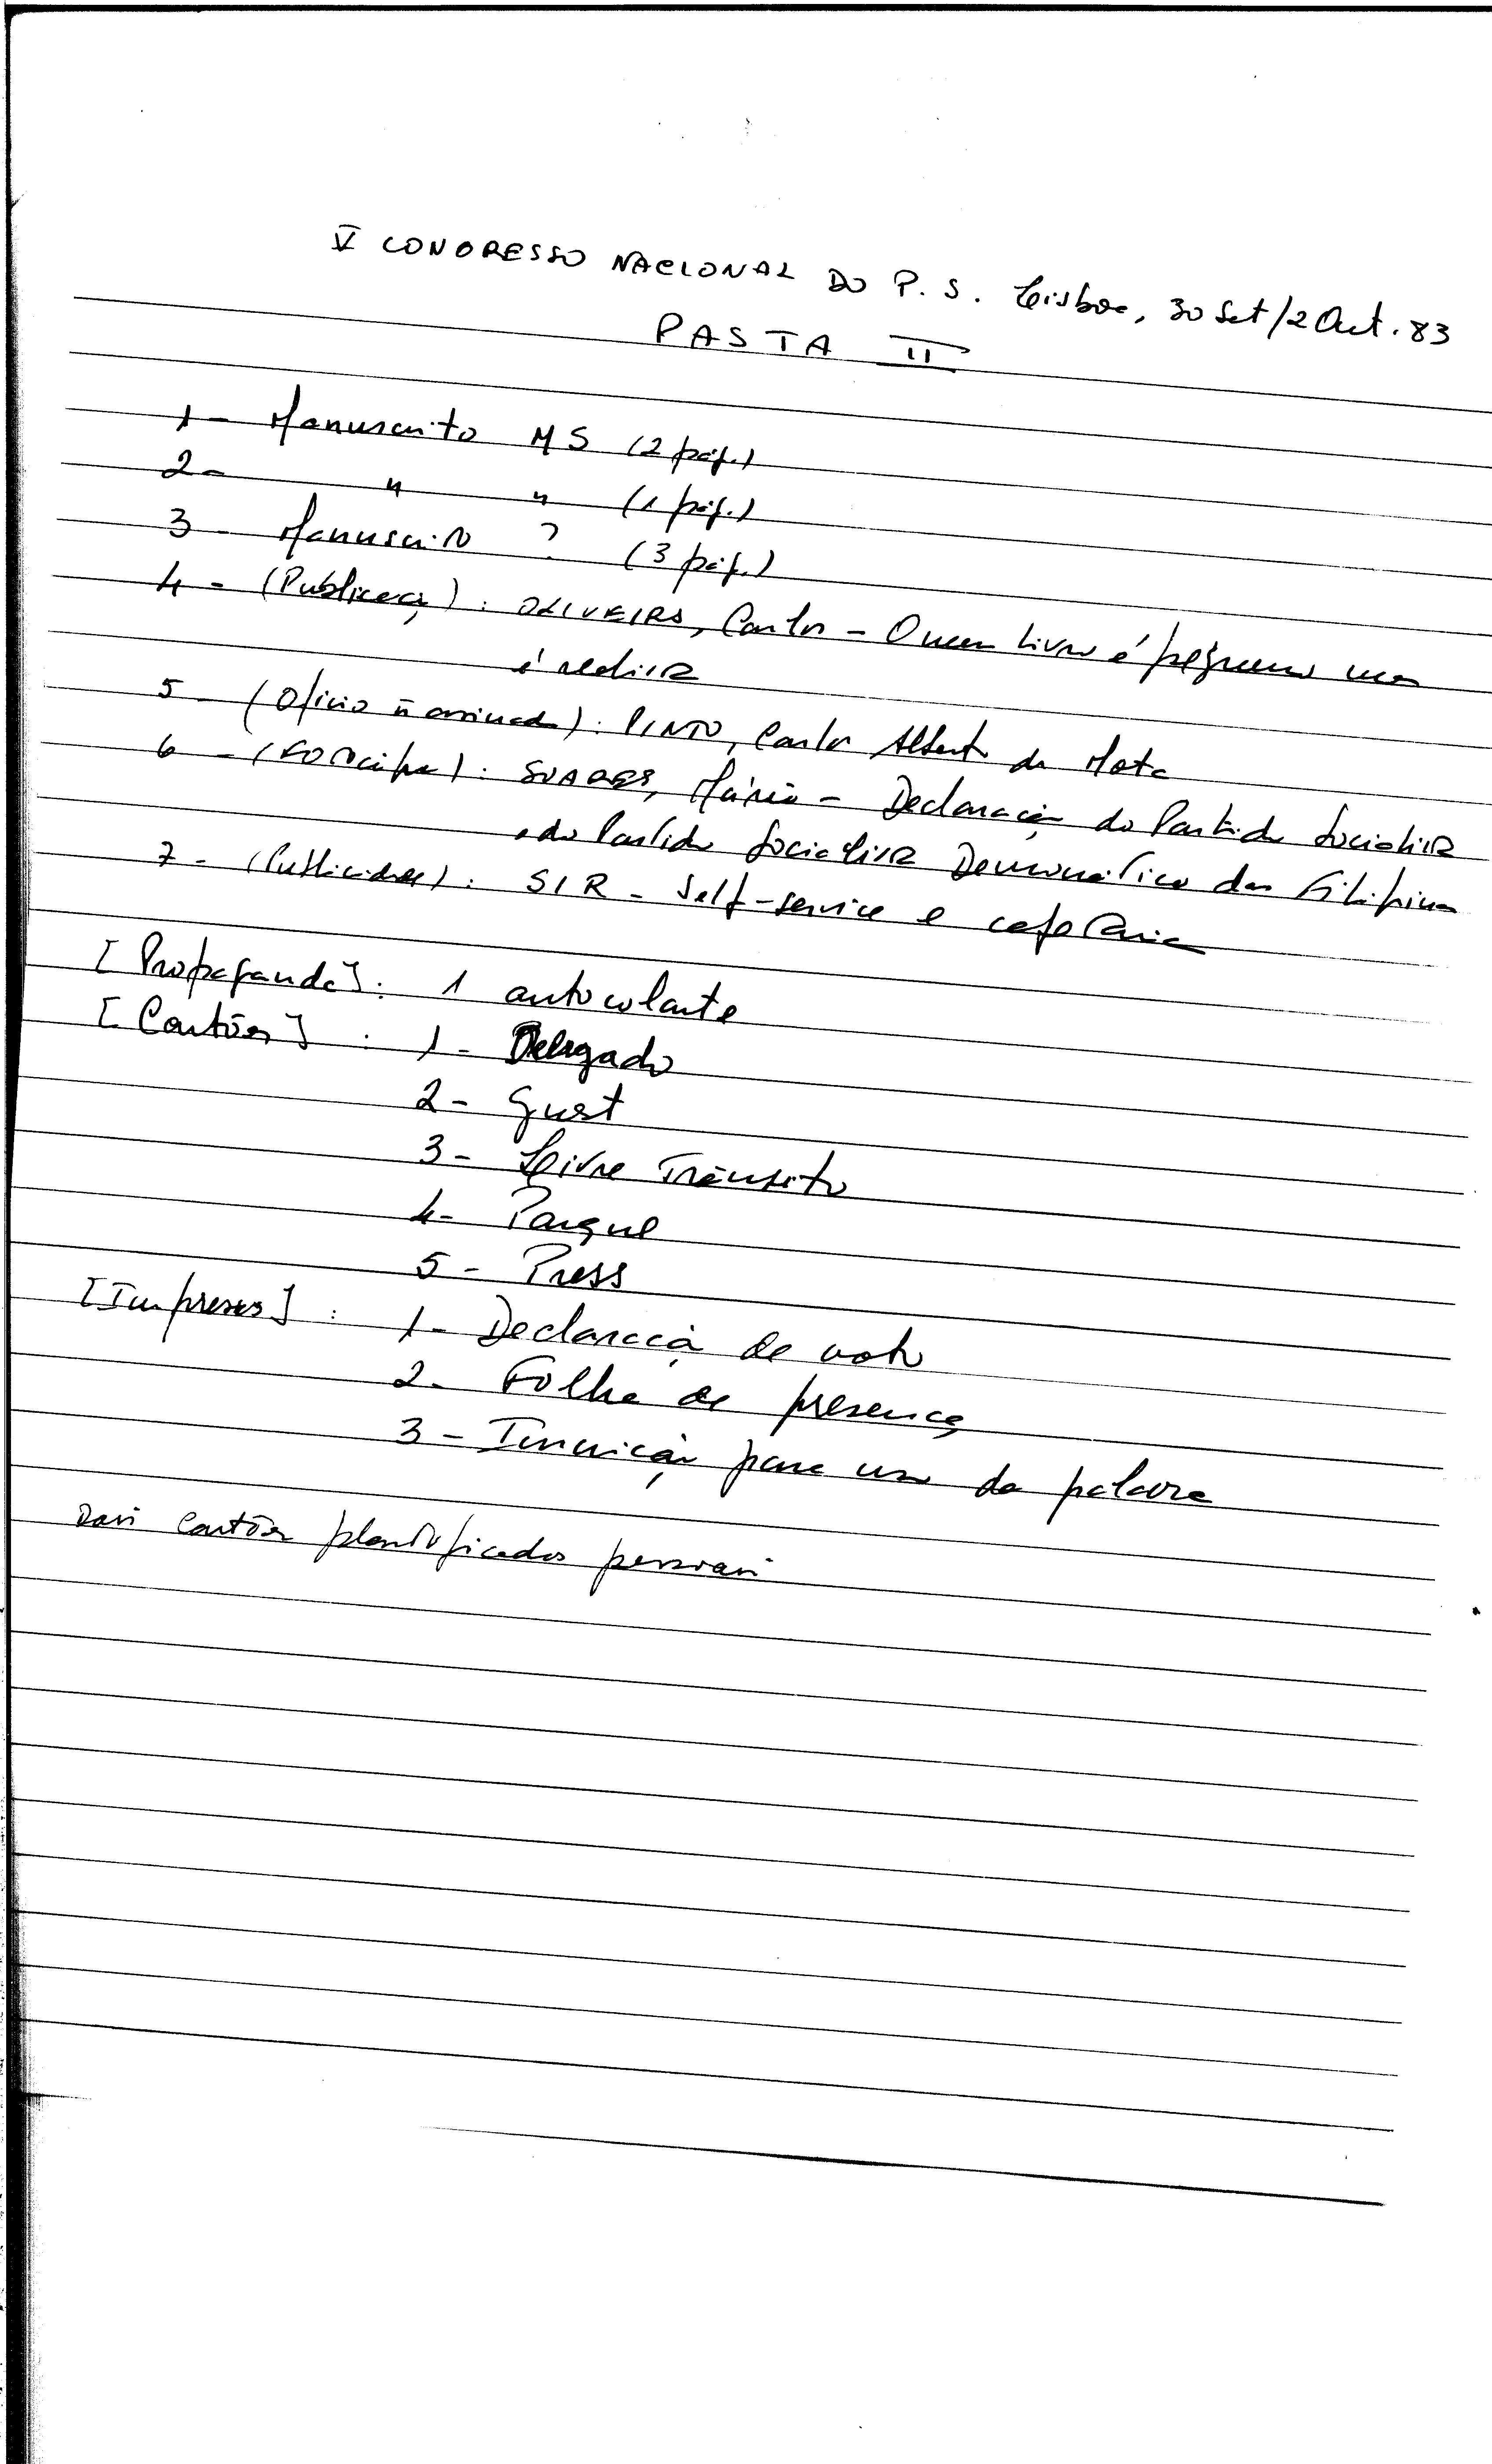 V CONGRESSO NACIONAL DO P. S. Lisboa, 30 Set/2 Out. 83
PASTA II
1 - Manuscrito MS (2 pág.)
2 - " " (1 pág.)
3 - Manuscrito ? (3 pág.)
4 - (Publicaç) : OLIVEIRA, Carlos - O meu livro é pequeno mas
é realista
5 - (Ofício ñ assinado) : PINTO, Carlos Alberto da Mota
6 - (Fotocópia) : SOARES, Mário - Declaração do Partido Socialista
e do Partido Socialista Democrático das Filipinas
7 - (Publicidade) : SIR - Self-service e cafetaria
[Propaganda] : 1 autocolante
[Cartões] : 1 - Delegado
2 - Guest
3 - Livre Trânsito
4 - Parque
5 - Press
[Impressos] : 1 - Declaração de voto
2 - Folha de presença
3 - Inscrição para uso da palavra
Dois cartões plastificados pessoais